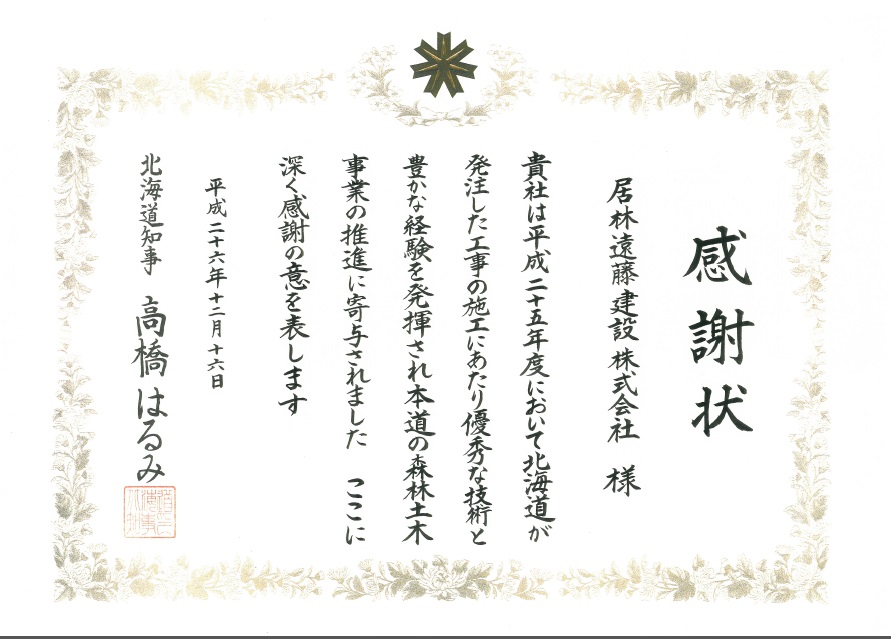 感謝状
居林遠藤建設株式会社 様
貴社は平成二十五年度において北海道が
発注した工事の施工にあたり優秀な技術と
豊かな経験を発揮され本道の森林土木
事業の推進に寄与されました ここに
深く感謝の意を表します
平成二十六年十二月十六日
北海道知事 高橋はるみ